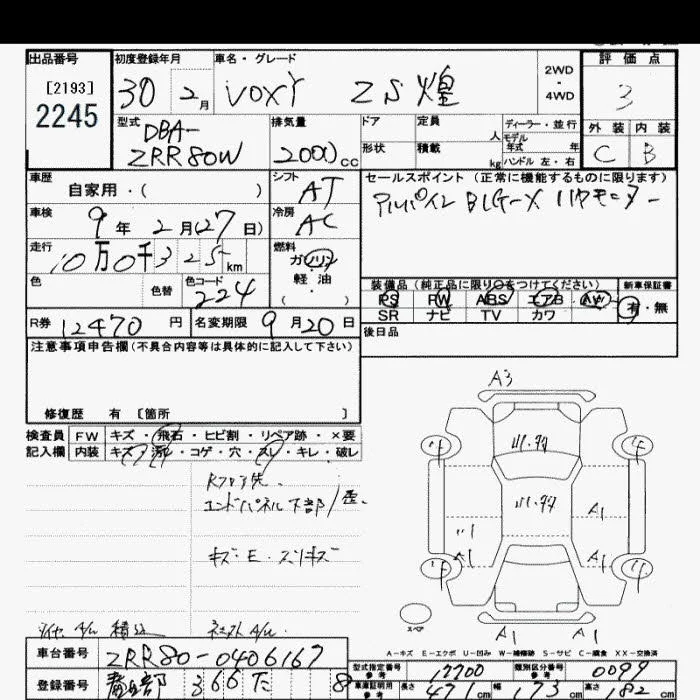 出品番号 初度登録年月 車名・グレード 2WD・4WD 評価点
[2193]
2245
30 2月 VOXY ZS 煌 3
型式 DBA-ZRR80W 排気量 2000cc ドア 定員 人 ディーラー・並行
形状 積載 kg モデル年式 年 ハンドル 左・右
外装 内装
C B
車歴 自家用・( )
シフト AT
セールスポイント (正常に機能するものに限ります)
車検 9年 2月(27日)
冷房 AC
アルパイン BIG-X
走行 10万0千325km
燃料 ガソリン・軽油・( )
色 色替 色コード 224
装備品 (純正品に限り○をつけてください) 新車保証書
PS PW ABS エアB AW 有・無
SR ナビ TV カワ
R券 12470円 名変期限 9月20日
後日品
注意事項申告欄(不具合内容等は具体的に記入して下さい)
修復歴 有 [箇所 ]
検査員 FW キズ・飛石・ヒビ割・リペア跡・×要
記入欄 内装 キズ・汚レ・コゲ・穴・スレ・キレ・破レ
エンドパネル下部
キズ・E・スリキズ
A3
A1
A1
A1
A1
A1 A1
スペア
A-キズ E-エクボ U-凹み W-補修跡 S-サビ C-腐食 XX-交換済
車台番号 ZRR80-0406167
型式指定番号 参考 17700 類別区分番号 参考 0099
登録番号 366 た 8
車庫証明用 参考 長さ 471cm 幅 173cm 高さ 182cm